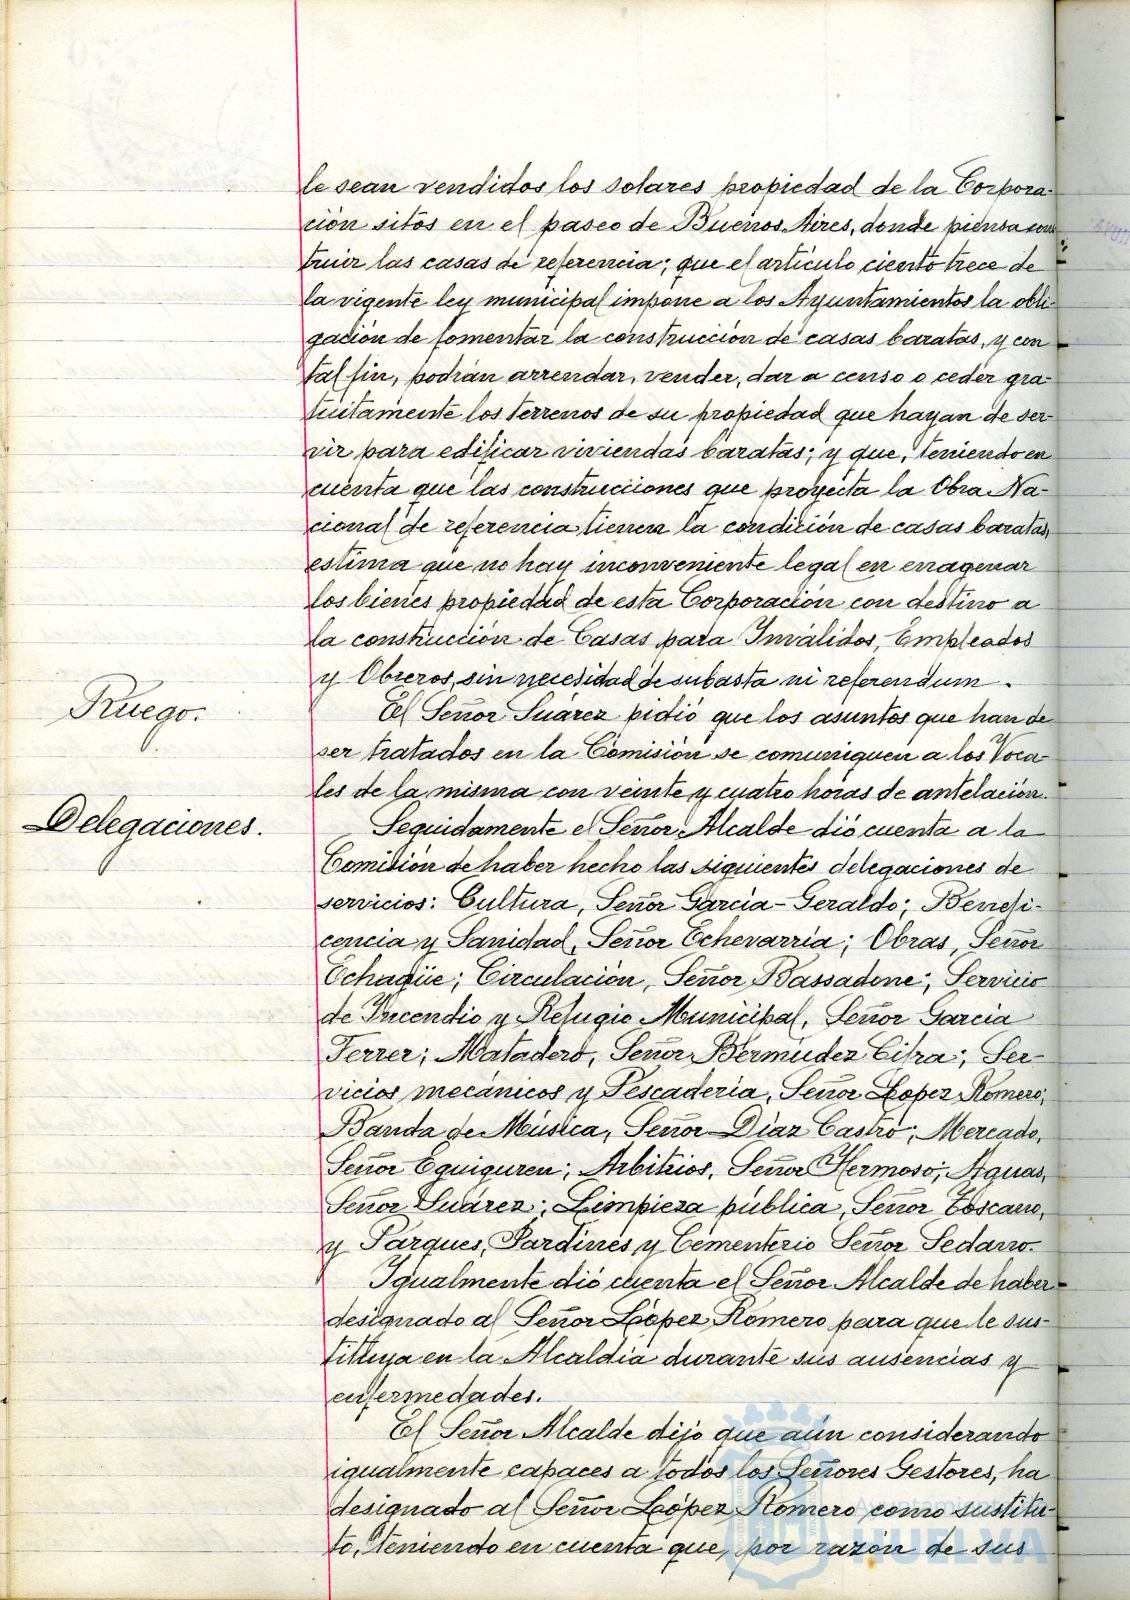 le sean vendidos los solares propiedad de la Corpora-
ción sitos en el paseo de Buenos Aires, donde piensa cons
truir las casas de referencia; que el artículo ciento trece de
la vigente ley municipal impone a los Ayuntamientos la obli-
gación de fomentar la construcción de casas baratas, y con
tal fin, podrán arrendar, vender, dar a censo o ceder gra-
tuitamente los terrenos de su propiedad que hayan de ser-
vir para edificar viviendas baratas; y que, teniendo en
cuenta que las construcciones que proyecta la Obra Na-
cional de referencia tienen la condición de casas baratas,
estima que no hay inconveniente legal en enagenar
los bienes propiedad de esta Corporación con destino a
la construcción de Casas para Inválidos, Empleados
y Obreros, sin necesidad de subasta ni referendum.
Ruego.
El Señor Suárez pidió que los asuntos que han de
ser tratados en la Comisión se comuniquen a los Voca-
les de la misma con veinte y cuatro horas de antelación.
Delegaciones.
Seguidamente el Señor Alcalde dió cuenta a la
Comisión de haber hecho las siguientes delegaciones de
servicios: Cultura, Señor García-Geraldo; Benefi-
cencia y Sanidad, Señor Echevarría; Obras, Señor
Echagüe; Circulación, Señor Bassadone; Servicio
de Incendio y Refugio Municipal, Señor García
Ferrer; Matadero, Señor Bermúdez Citra; Ser-
vicios mecánicos y Pescadería, Señor Lopez Romero;
Banda de Música, Señor Díaz Castro; Mercado,
Señor Eguiguren; Arbitrios, Señor Hermoso; Aguas,
Señor Suárez; Limpieza pública, Señor Toscano,
y Parques, Jardines y Cementerio Señor Sedano.
Igualmente dió cuenta el Señor Alcalde de haber
designado al Señor López Romero para que le sus-
tituya en la Alcaldía durante sus ausencias y
enfermedades.
El Señor Alcalde dijo que aún considerando
igualmente capaces a todos los Señores Gestores, ha
designado al Señor López Romero como sustitu-
to, teniendo en cuenta que, por razón de sus
Ayuntamiento
HUELVA